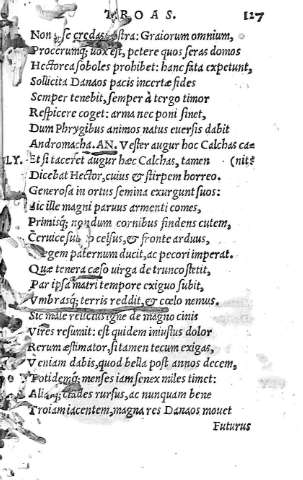 TROAS. 127
Non, se credas nostra: Graiorum omnium,
Procerumq; uox est, petere quos seras domos
Hectorea soboles prohibet: hanc fata expetunt,
Sollicita Danaos pacis incertæ fides
Semper tenebit, semper à tergo timor
Respicere coget: arma nec poni sinet,
Dum Phrygibus animos natus euersis dabit
Andromacha. AN. Vester augur hoc Calchas ca=
LY. Et si taceret augur hæc Calchas, tamen (nit?
Dicebat Hector, cuius & stirpem horreo.
Generosa in ortus semina exurgunt suos:
Sic ille magni paruus armenti comes,
Primisq; nondum cornibus findens cutem,
Ceruice subito celsus, & fronte arduus,
Gregem paternum ducit, ac pecori imperat.
Quæ tenera cæso uirga de trunco stetit,
Par ipsa matri tempore exiguo subit,
Vmbrasq; terris reddit, & cœlo nemus.
Sic male relictus igne de magno cinis
Vires resumit: est quidem iniustus dolor
Rerum æstimator, si tamen tecum exigas,
Veniam dabis, quod bella post annos decem,
Totidemq; menses iam senex miles timet:
Aliasq; clades rursus, ac nunquam bene
Troiam iacentem, magna res Danaos mouet
Futurus